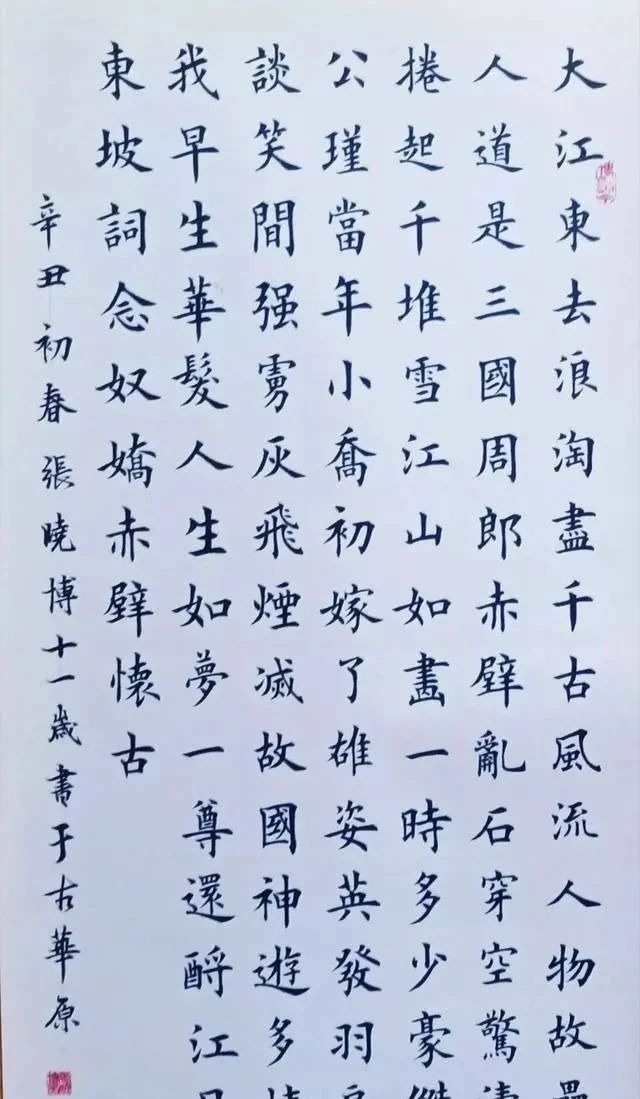 大江東去浪淘盡千古風流人物故
人道是三國周郎赤壁亂石穿空驚濤
捲起千堆雪江山如畫一時多少豪傑
公瑾當年小喬初嫁了雄姿英發羽
談笑間强虜灰飛煙滅故國神遊多情
我早生華髮人生如夢一尊還酹江月
東坡詞念奴嬌赤壁懷古
辛丑初春張曉博十一歲書于古華原